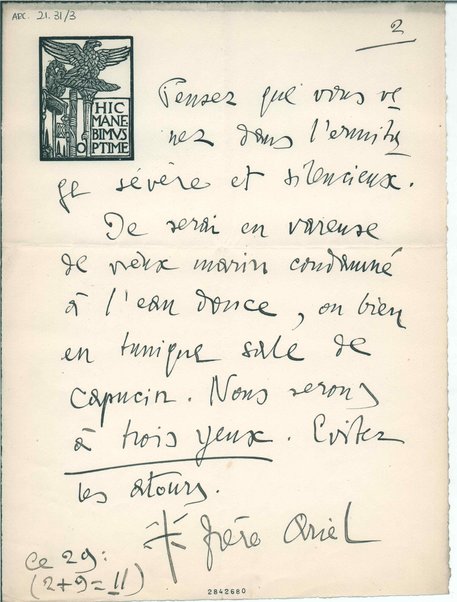 ARC. 21. 31/3
2
HIC
MANE
BIMVS
OPTIME
Pensez que vous ve
nez dans l'ermita
ge sévère et silencieux.
Je serai en vareuse
de vieux marin condamné
à l'eau douce, ou bien
en tunique sale de
capucin. Nous serons
à trois yeux. Evitez
les atours.
frère Ariel
Ce 29:
(2+9=11)
2842680